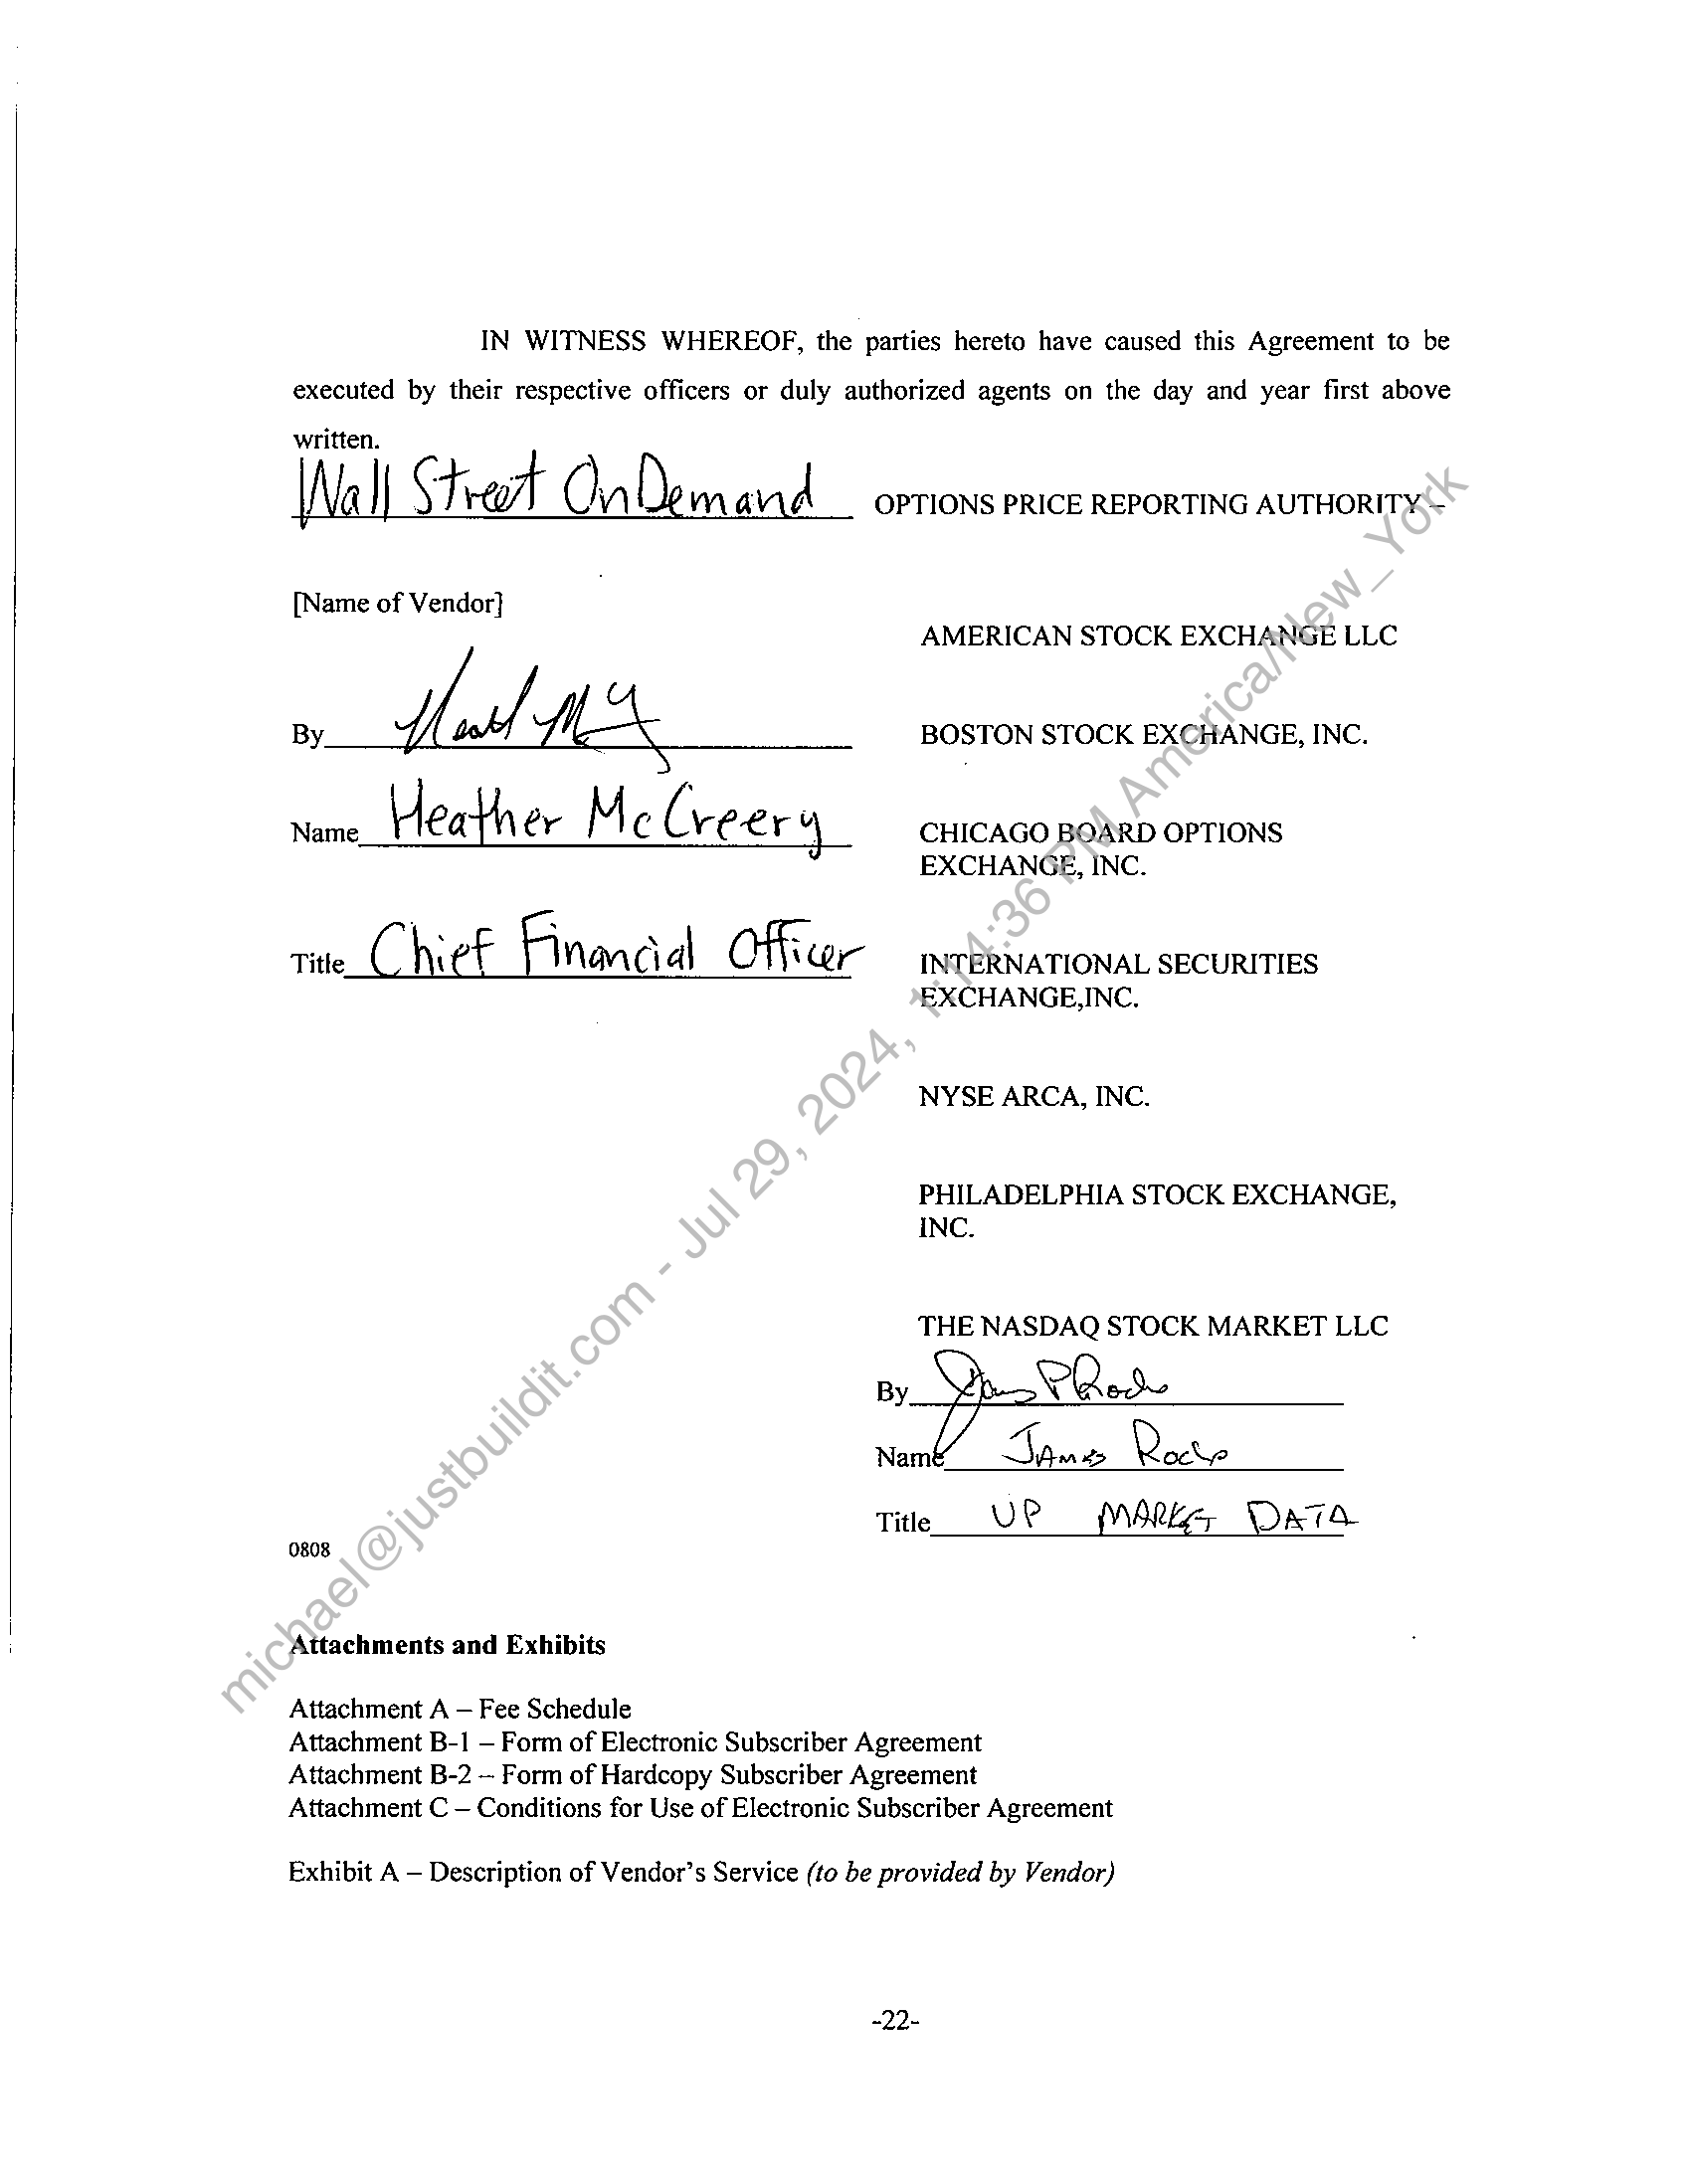 IN WITNESS WHEREOF, the parties hereto have caused this Agreement to be
executed by their respective officers or duly authorized agents on the day and year first above
written.
Wall Street OnDemand
[Name of Vendor]
By
Name Heather McCreery
Title Chief Financial Officer
OPTIONS PRICE REPORTING AUTHORITY –
AMERICAN STOCK EXCHANGE LLC
BOSTON STOCK EXCHANGE, INC.
CHICAGO BOARD OPTIONS
EXCHANGE, INC.
INTERNATIONAL SECURITIES
EXCHANGE,INC.
NYSE ARCA, INC.
PHILADELPHIA STOCK EXCHANGE,
INC.
THE NASDAQ STOCK MARKET LLC
By James P Roche
Name James Roche
Title VP MARKET DATA
0808
Attachments and Exhibits
Attachment A – Fee Schedule
Attachment B-1 – Form of Electronic Subscriber Agreement
Attachment B-2 – Form of Hardcopy Subscriber Agreement
Attachment C – Conditions for Use of Electronic Subscriber Agreement
Exhibit A – Description of Vendor's Service (to be provided by Vendor)
-22-
michael@justbuildit.com - Jul 29, 2024, 1:14:36 PM America/New_York